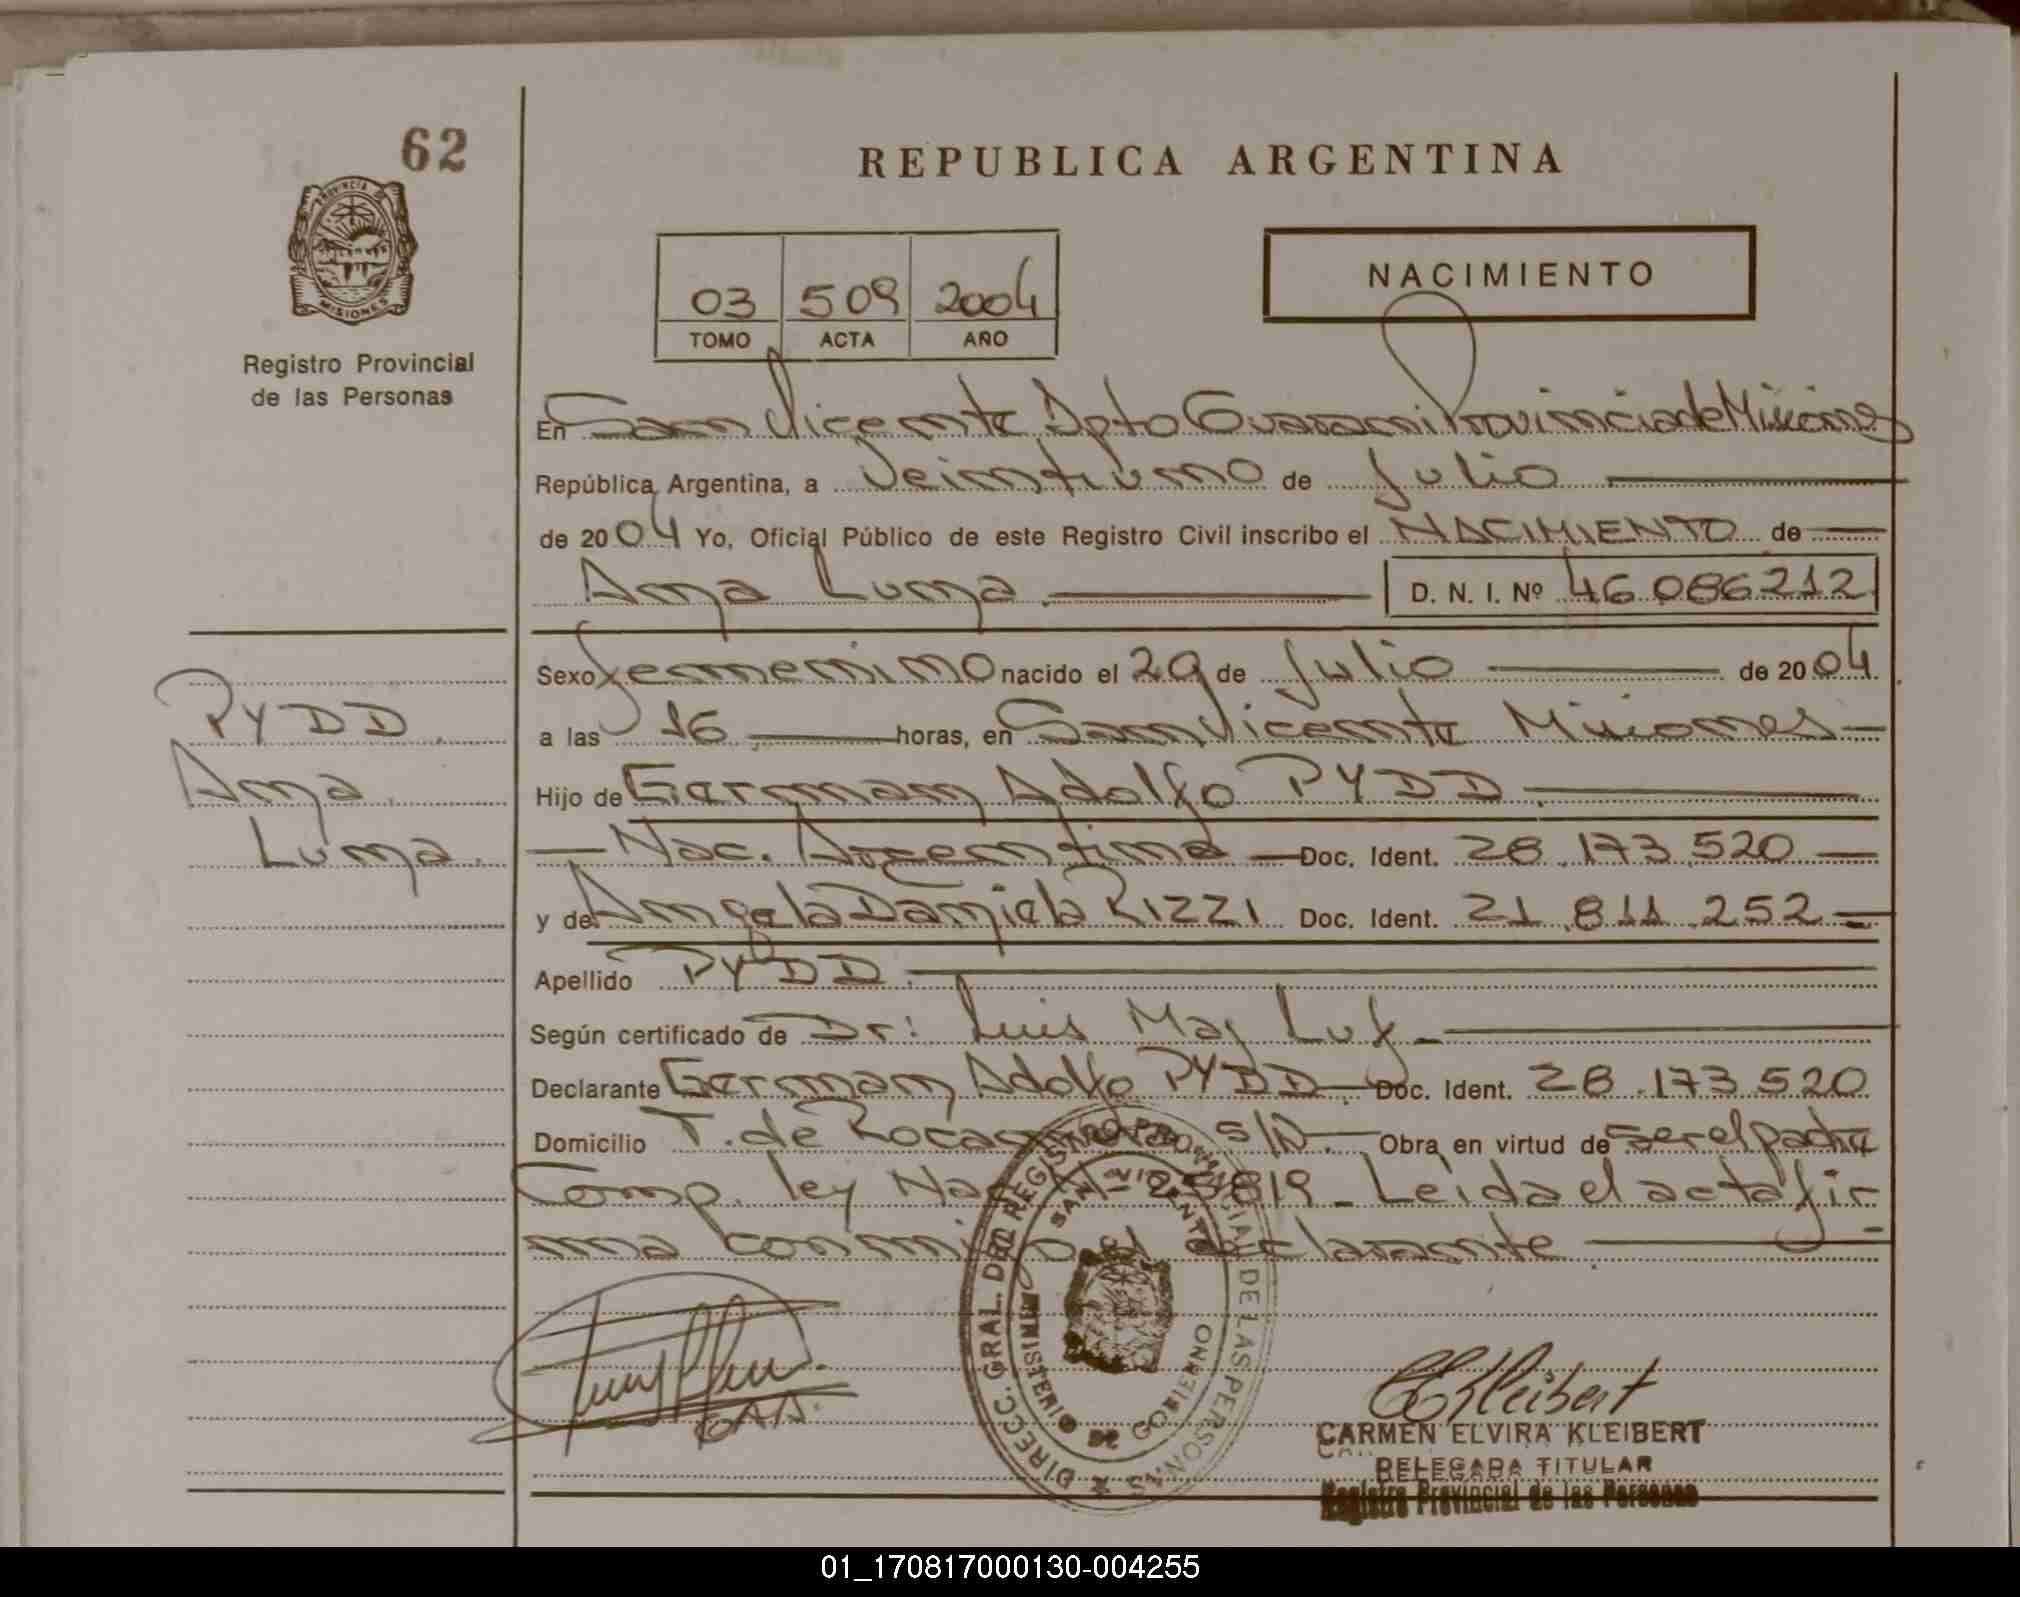 62
REPUBLICA ARGENTINA
PROVINCIA DE
MISIONES
Registro Provincial
de las Personas
03 509 2004
TOMO ACTA AÑO
NACIMIENTO
En San Vicente Dpto Guarani Provincia de Misiones
República Argentina, a Veintiuno de Julio
de 2004 Yo, Oficial Público de este Registro Civil inscribo el NACIMIENTO de
Luna D. N. I. Nº 46.086212
Sexo femenino nacido el de Julio de 2004
a las 16 horas, en San Vicente Misiones
PYDD
Luna
Hijo de German Adolfo PYDD
Nac. Argentina Doc. Ident. 28.173.520
y de Angela Daniela RIZZI Doc. Ident. 21.811.252
Apellido PYDD
Según certificado de Dr: Luis
Declarante German Adolfo PYDD Doc. Ident. 28.173.520
Domicilio T. de Rocamora S/N. Obra en virtud de ser el padre
Comp. ley Nac Leida el acta fir
ma conmigo el declarante
DIRECC. GRAL. DEL REGISTRO PROVINCIAL DE LAS PERSONAS
SAN VICENTE
MINISTERIO DE GOBIERNO
CEKleibert
CARMEN ELVIRA KLEIBERT
DELEGADA TITULAR
Registro Provincial de las Personas
01_170817000130-004255